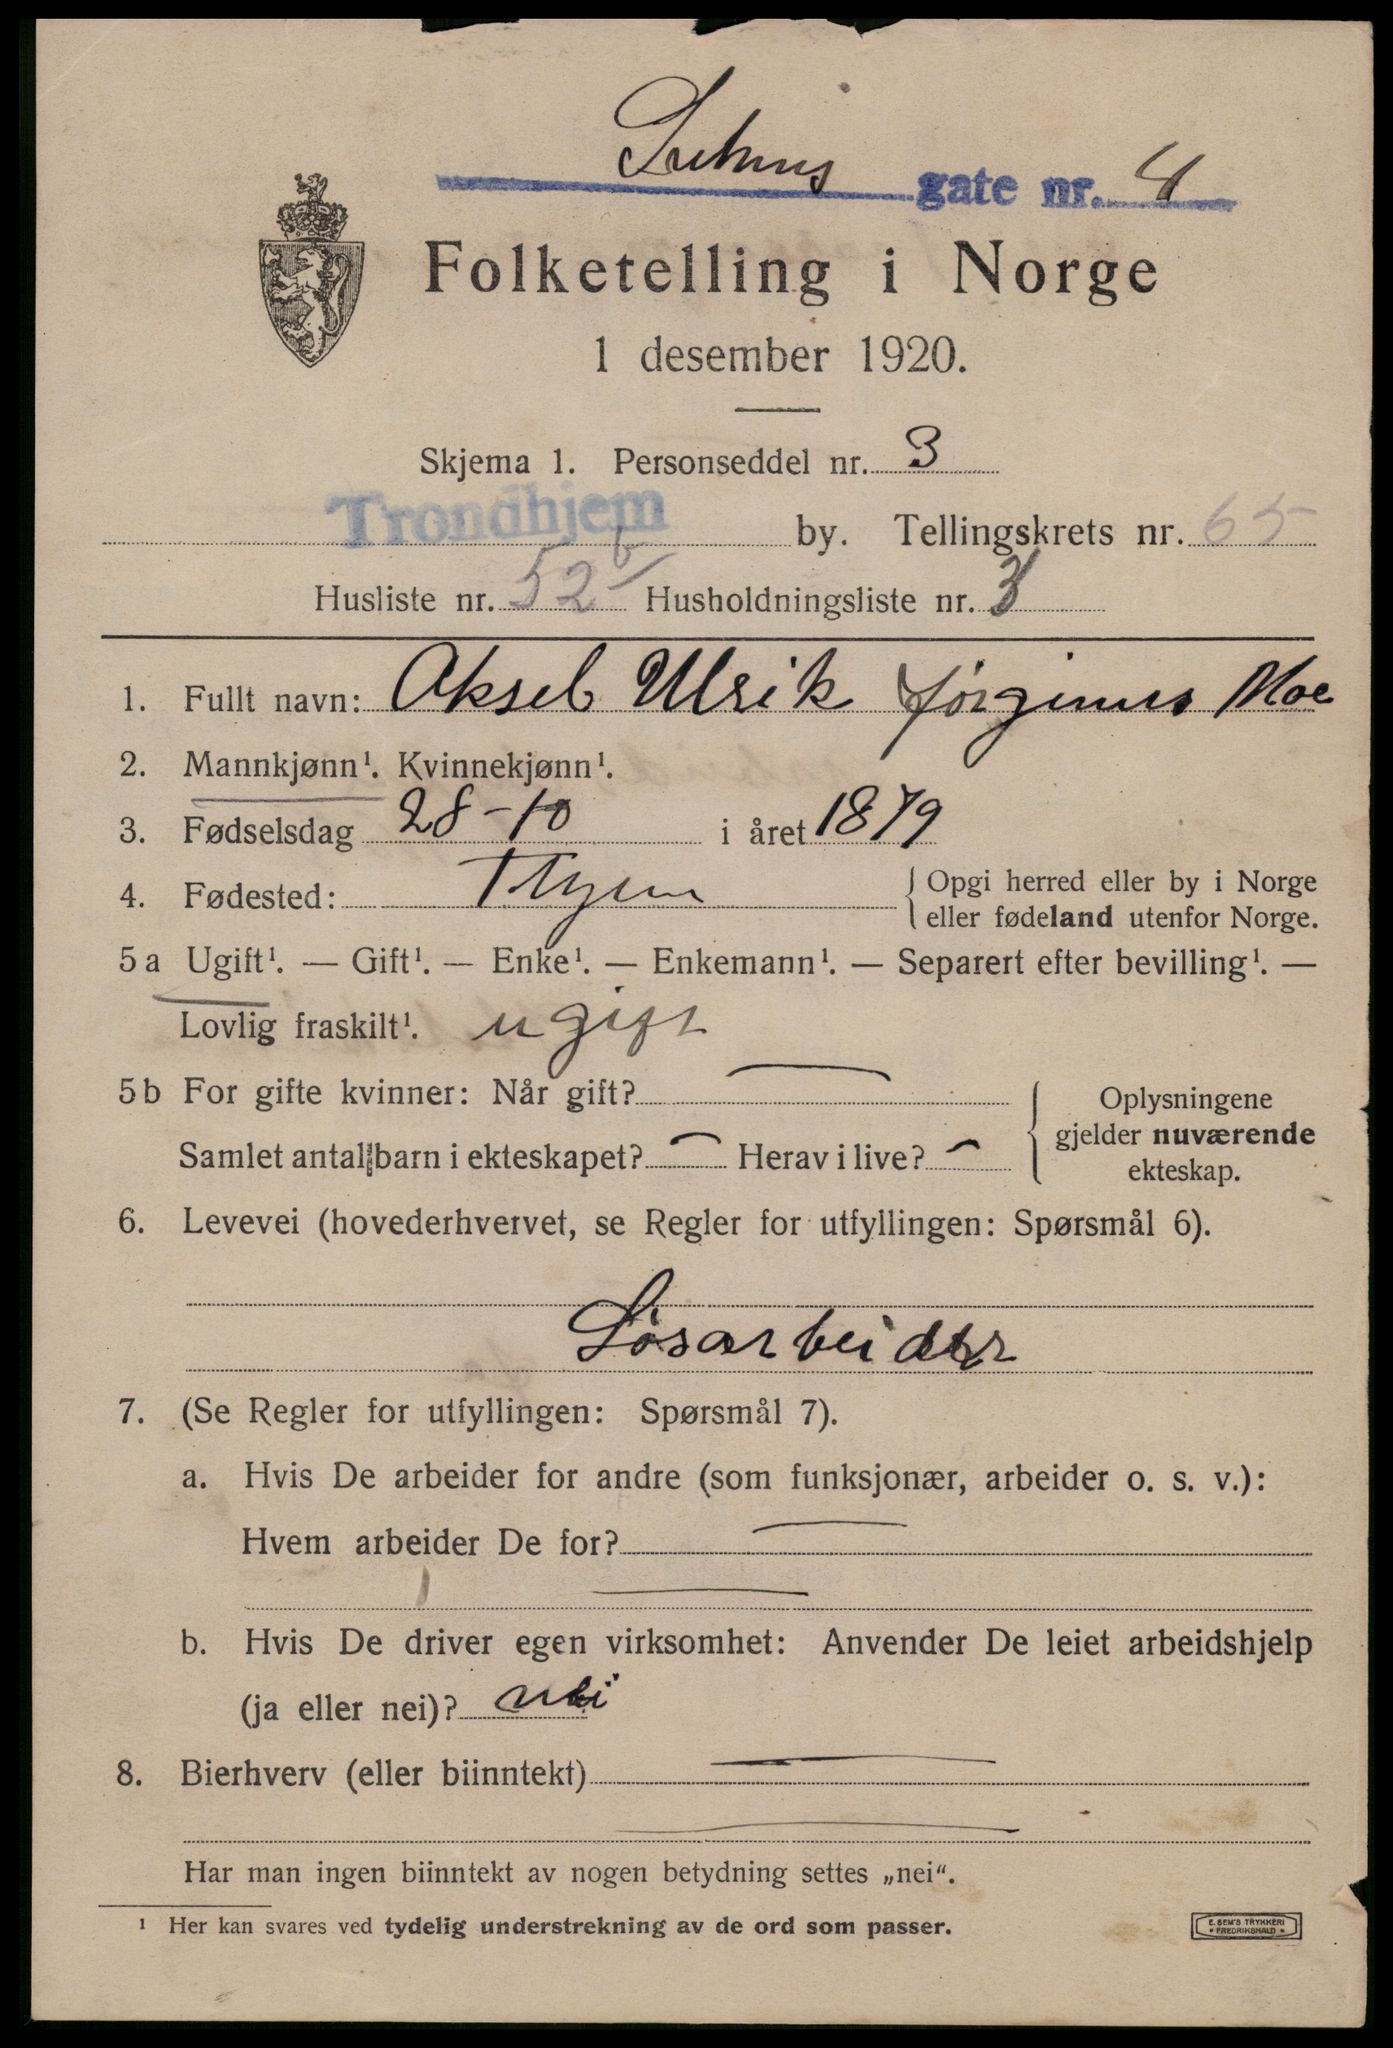 gate nr. 4
Folketelling i Norge
1 desember 1920.
Skjema 1. Personseddel nr. 3
Trondhjem by. Tellingskrets nr. 65
Husliste nr. 52 b Husholdningsliste nr. 3
1. Fullt navn: Aksel Ulrik Jørginus Moe
2. Mannkjønn¹. Kvinnekjønn¹.
3. Fødselsdag 28-10 i året 1879
4. Fødested: Thjem { Opgi herred eller by i Norge
eller fødeland utenfor Norge.
5 a Ugift¹. — Gift¹. — Enke¹. — Enkemann¹. — Separert efter bevilling¹. —
Lovlig fraskilt¹. ugift
5 b For gifte kvinner: Når gift? —
Samlet antal barn i ekteskapet? — Herav i live? —
{ Oplysningene
gjelder nuværende
ekteskap.
6. Levevei (hovederhvervet, se Regler for utfyllingen: Spørsmål 6).
Løsarbeider
7. (Se Regler for utfyllingen: Spørsmål 7).
a. Hvis De arbeider for andre (som funksjonær, arbeider o. s. v.):
Hvem arbeider De for? —
—
b. Hvis De driver egen virksomhet: Anvender De leiet arbeidshjelp
(ja eller nei)? nei
8. Bierhverv (eller biinntekt) —
—
Har man ingen biinntekt av nogen betydning settes „nei“.
¹ Her kan svares ved tydelig understrekning av de ord som passer.
E. SEM'S TRYKKERI
* FREDRIKSHALD *